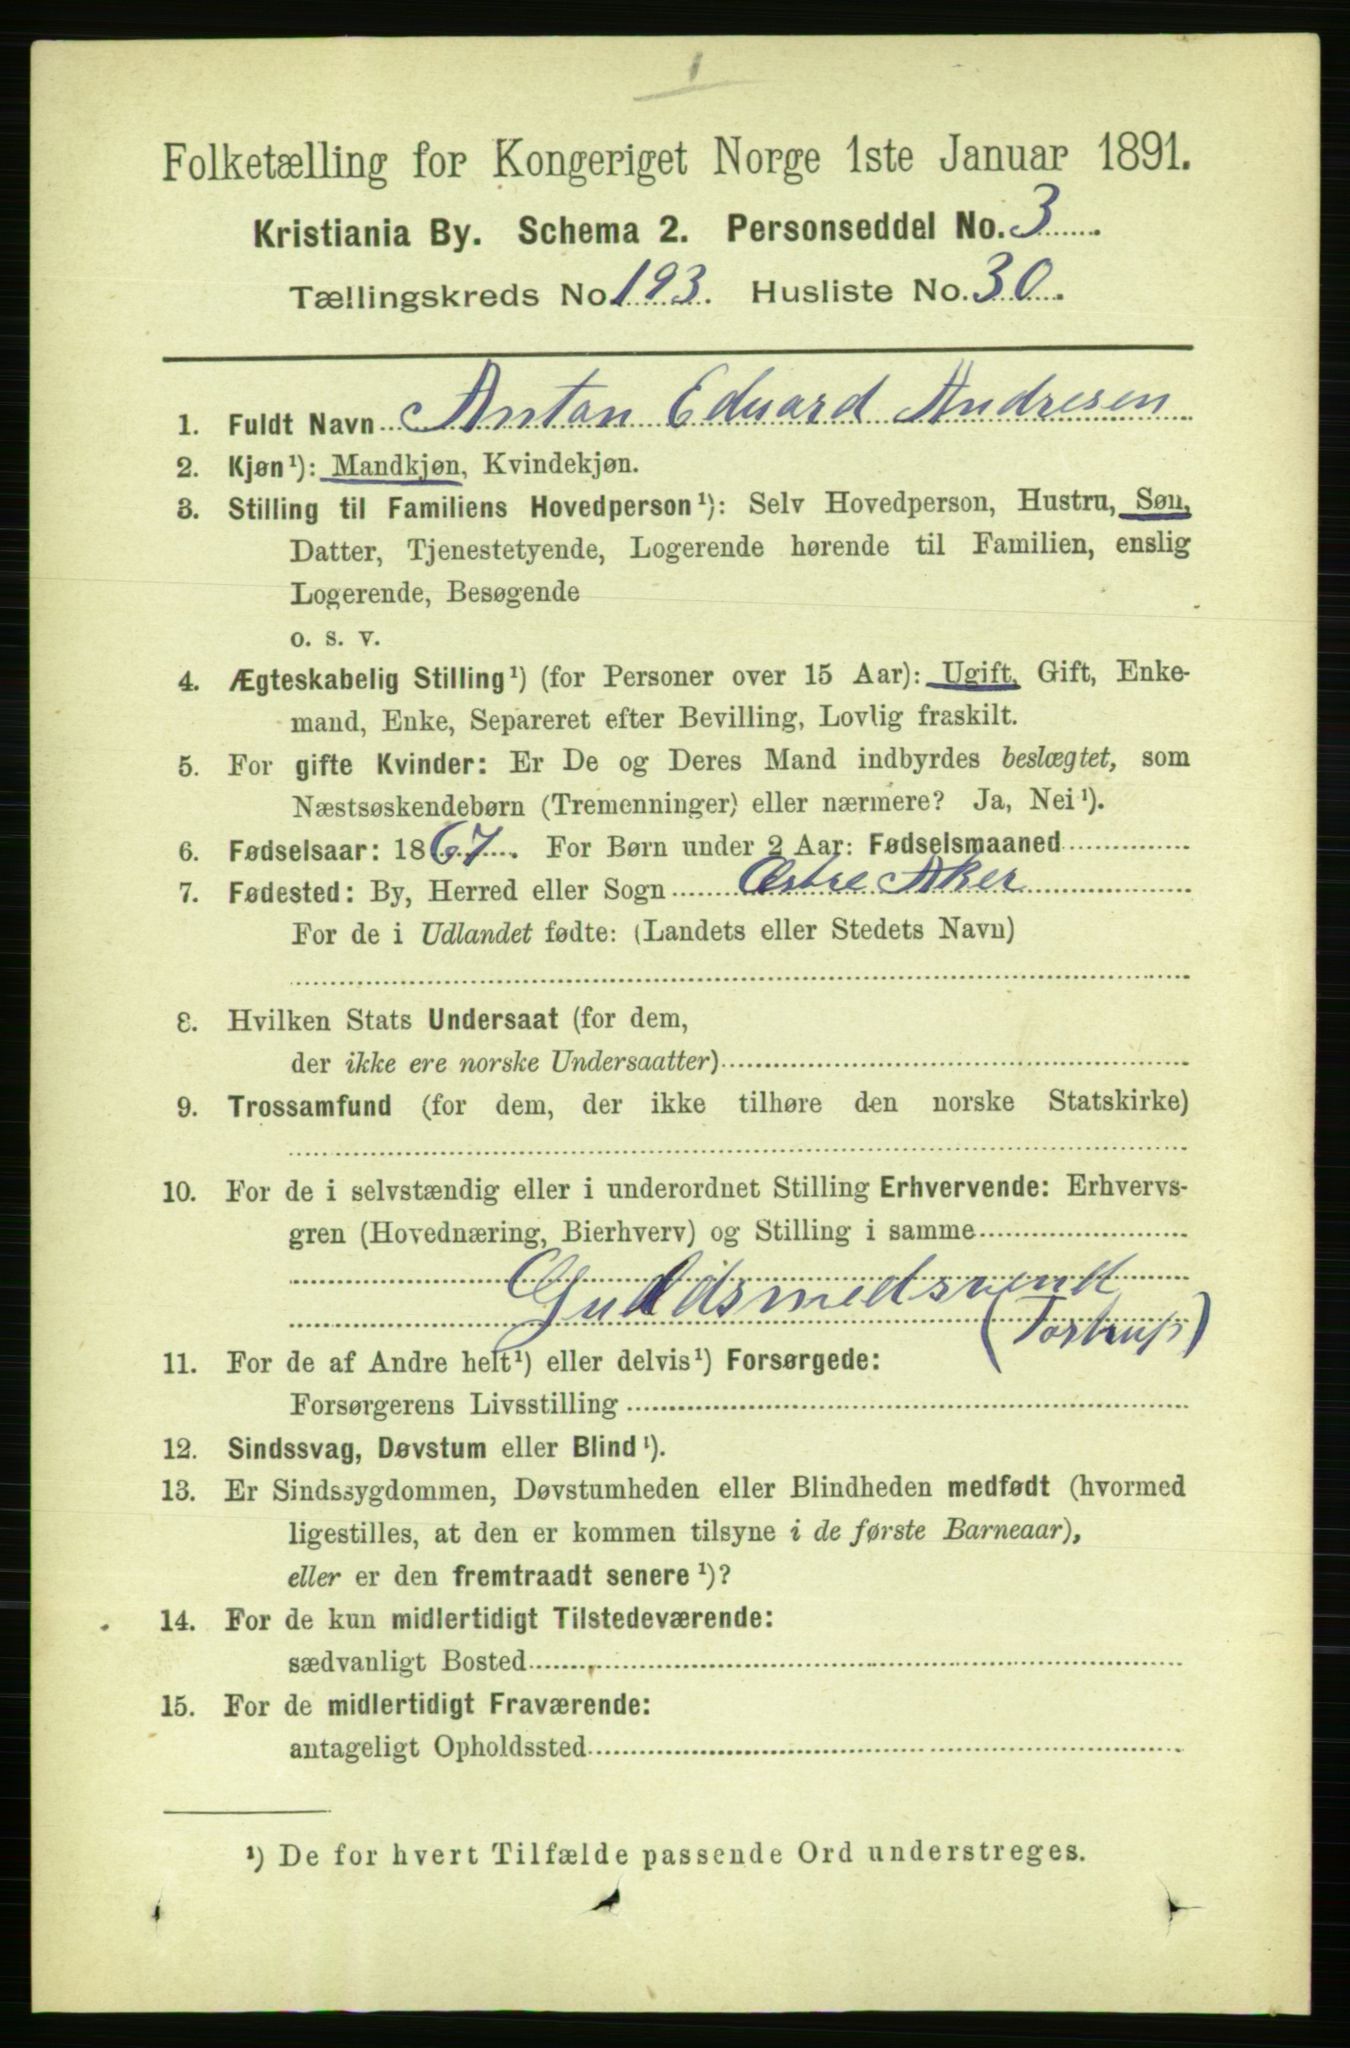 1
Folketælling for Kongeriget Norge 1ste Januar 1891.
Kristiania By. Schema 2. Personseddel No. 3
Tællingskreds No. 193. Husliste No. 30.
1. Fuldt Navn Anton Eduard Andresen
2. Kjøn¹): Mandkjøn, Kvindekjøn.
3. Stilling til Familiens Hovedperson¹): Selv Hovedperson, Hustru, Søn,
Datter, Tjenestetyende, Logerende hørende til Familien, enslig
Logerende, Besøgende
o. s. v.
4. Ægteskabelig Stilling¹) (for Personer over 15 Aar): Ugift, Gift, Enke-
mand, Enke, Separeret efter Bevilling, Lovlig fraskilt.
5. For gifte Kvinder: Er De og Deres Mand indbyrdes beslægtet, som
Næstsøskendebørn (Tremenninger) eller nærmere? Ja, Nei¹).
6. Fødselsaar: 1867. For Børn under 2 Aar: Fødselsmaaned
7. Fødested: By, Herred eller Sogn Østre Aker
For de i Udlandet fødte: (Landets eller Stedets Navn)
8. Hvilken Stats Undersaat (for dem,
der ikke ere norske Undersaatter)
9. Trossamfund (for dem, der ikke tilhøre den norske Statskirke)
10. For de i selvstændig eller i underordnet Stilling Erhvervende: Erhvervs-
gren (Hovednæring, Bierhverv) og Stilling i samme
Guldsmedsvend
(Tostrup)
11. For de af Andre helt¹) eller delvis¹) Forsørgede:
Forsørgerens Livsstilling
12. Sindssvag, Døvstum eller Blind¹).
13. Er Sindssygdommen, Døvstumheden eller Blindheden medfødt (hvormed
ligestilles, at den er kommen tilsyne i de første Barneaar),
eller er den fremtraadt senere¹)?
14. For de kun midlertidigt Tilstedeværende:
sædvanligt Bosted
15. For de midlertidigt Fraværende:
antageligt Opholdssted
¹) De for hvert Tilfælde passende Ord understreges.